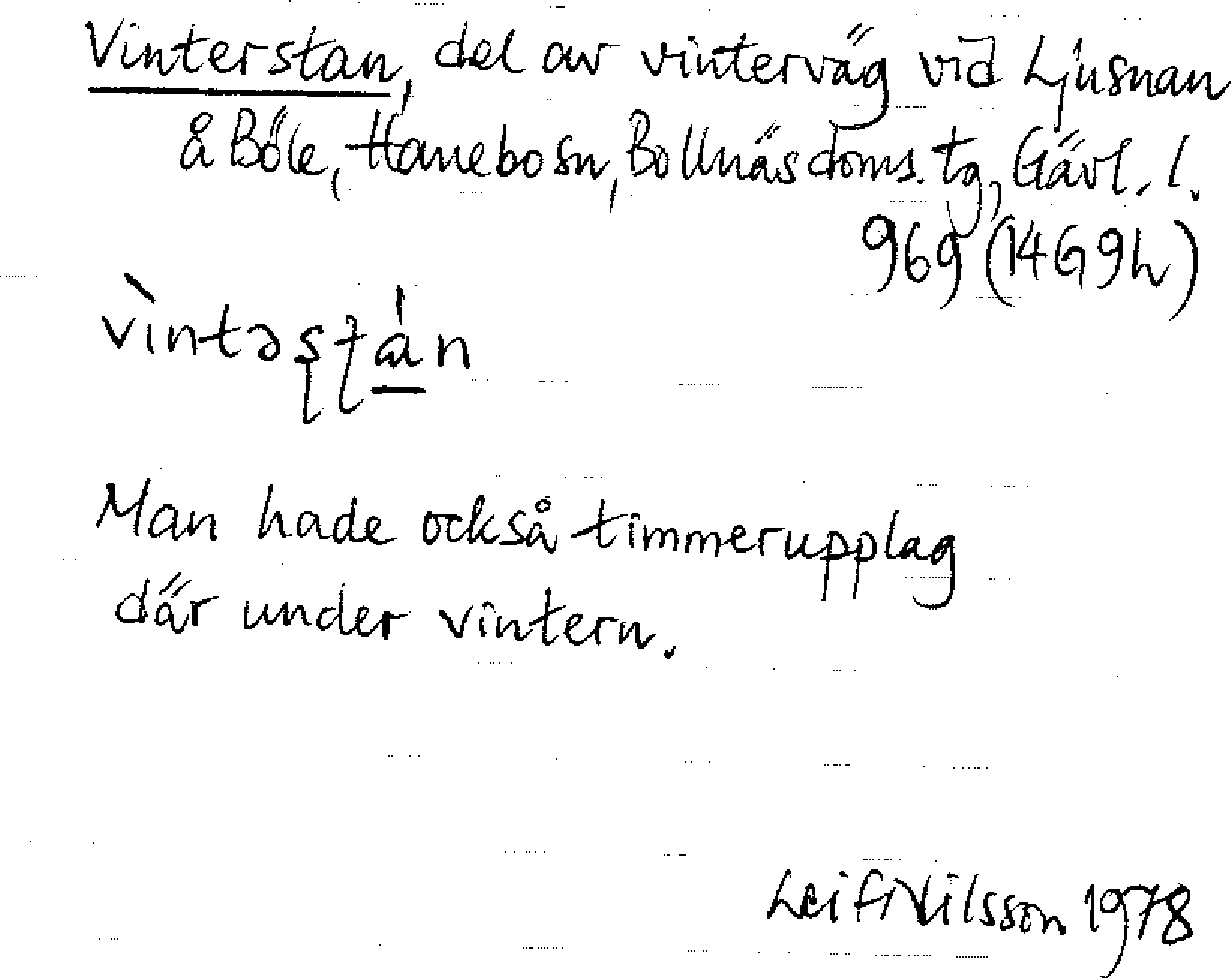 Vinterstan, del av vinterväg vid Ljusnan
å Böle, Hanebo sn, Bollnäs doms. tg, Gävl. l.
969 (14G 9h)
vìntəʂʈán
Man hade också timmerupplag
där under vintern.
Leif Nilsson 1978